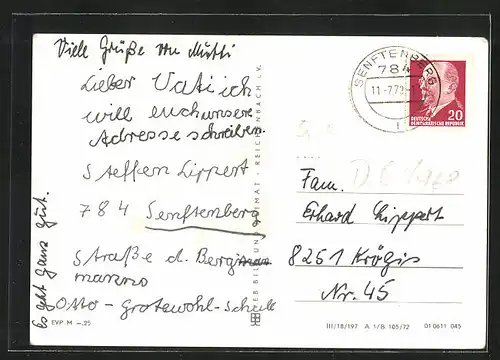 Viele Grüße von Mutti
Lieber Vati ich
will euch unsere
Adresse schreiben.
Steffen Lippert
784 Senftenberg
Straße d. Berg
manno
Otto-Grotewohl-Schule
Es geht ganz gut.
EVP M –.25
VEB BILD UND HEIMAT · REICHENBACH I. V.
SENFTENBERG
784
20
DEUTSCHE
DEMOKRATISCHE REPUBLIK
Fam.
Erhard Lippert
8251 Krögis
Nr. 45
III/18/197 A 1/B 105/72 01 0611 045